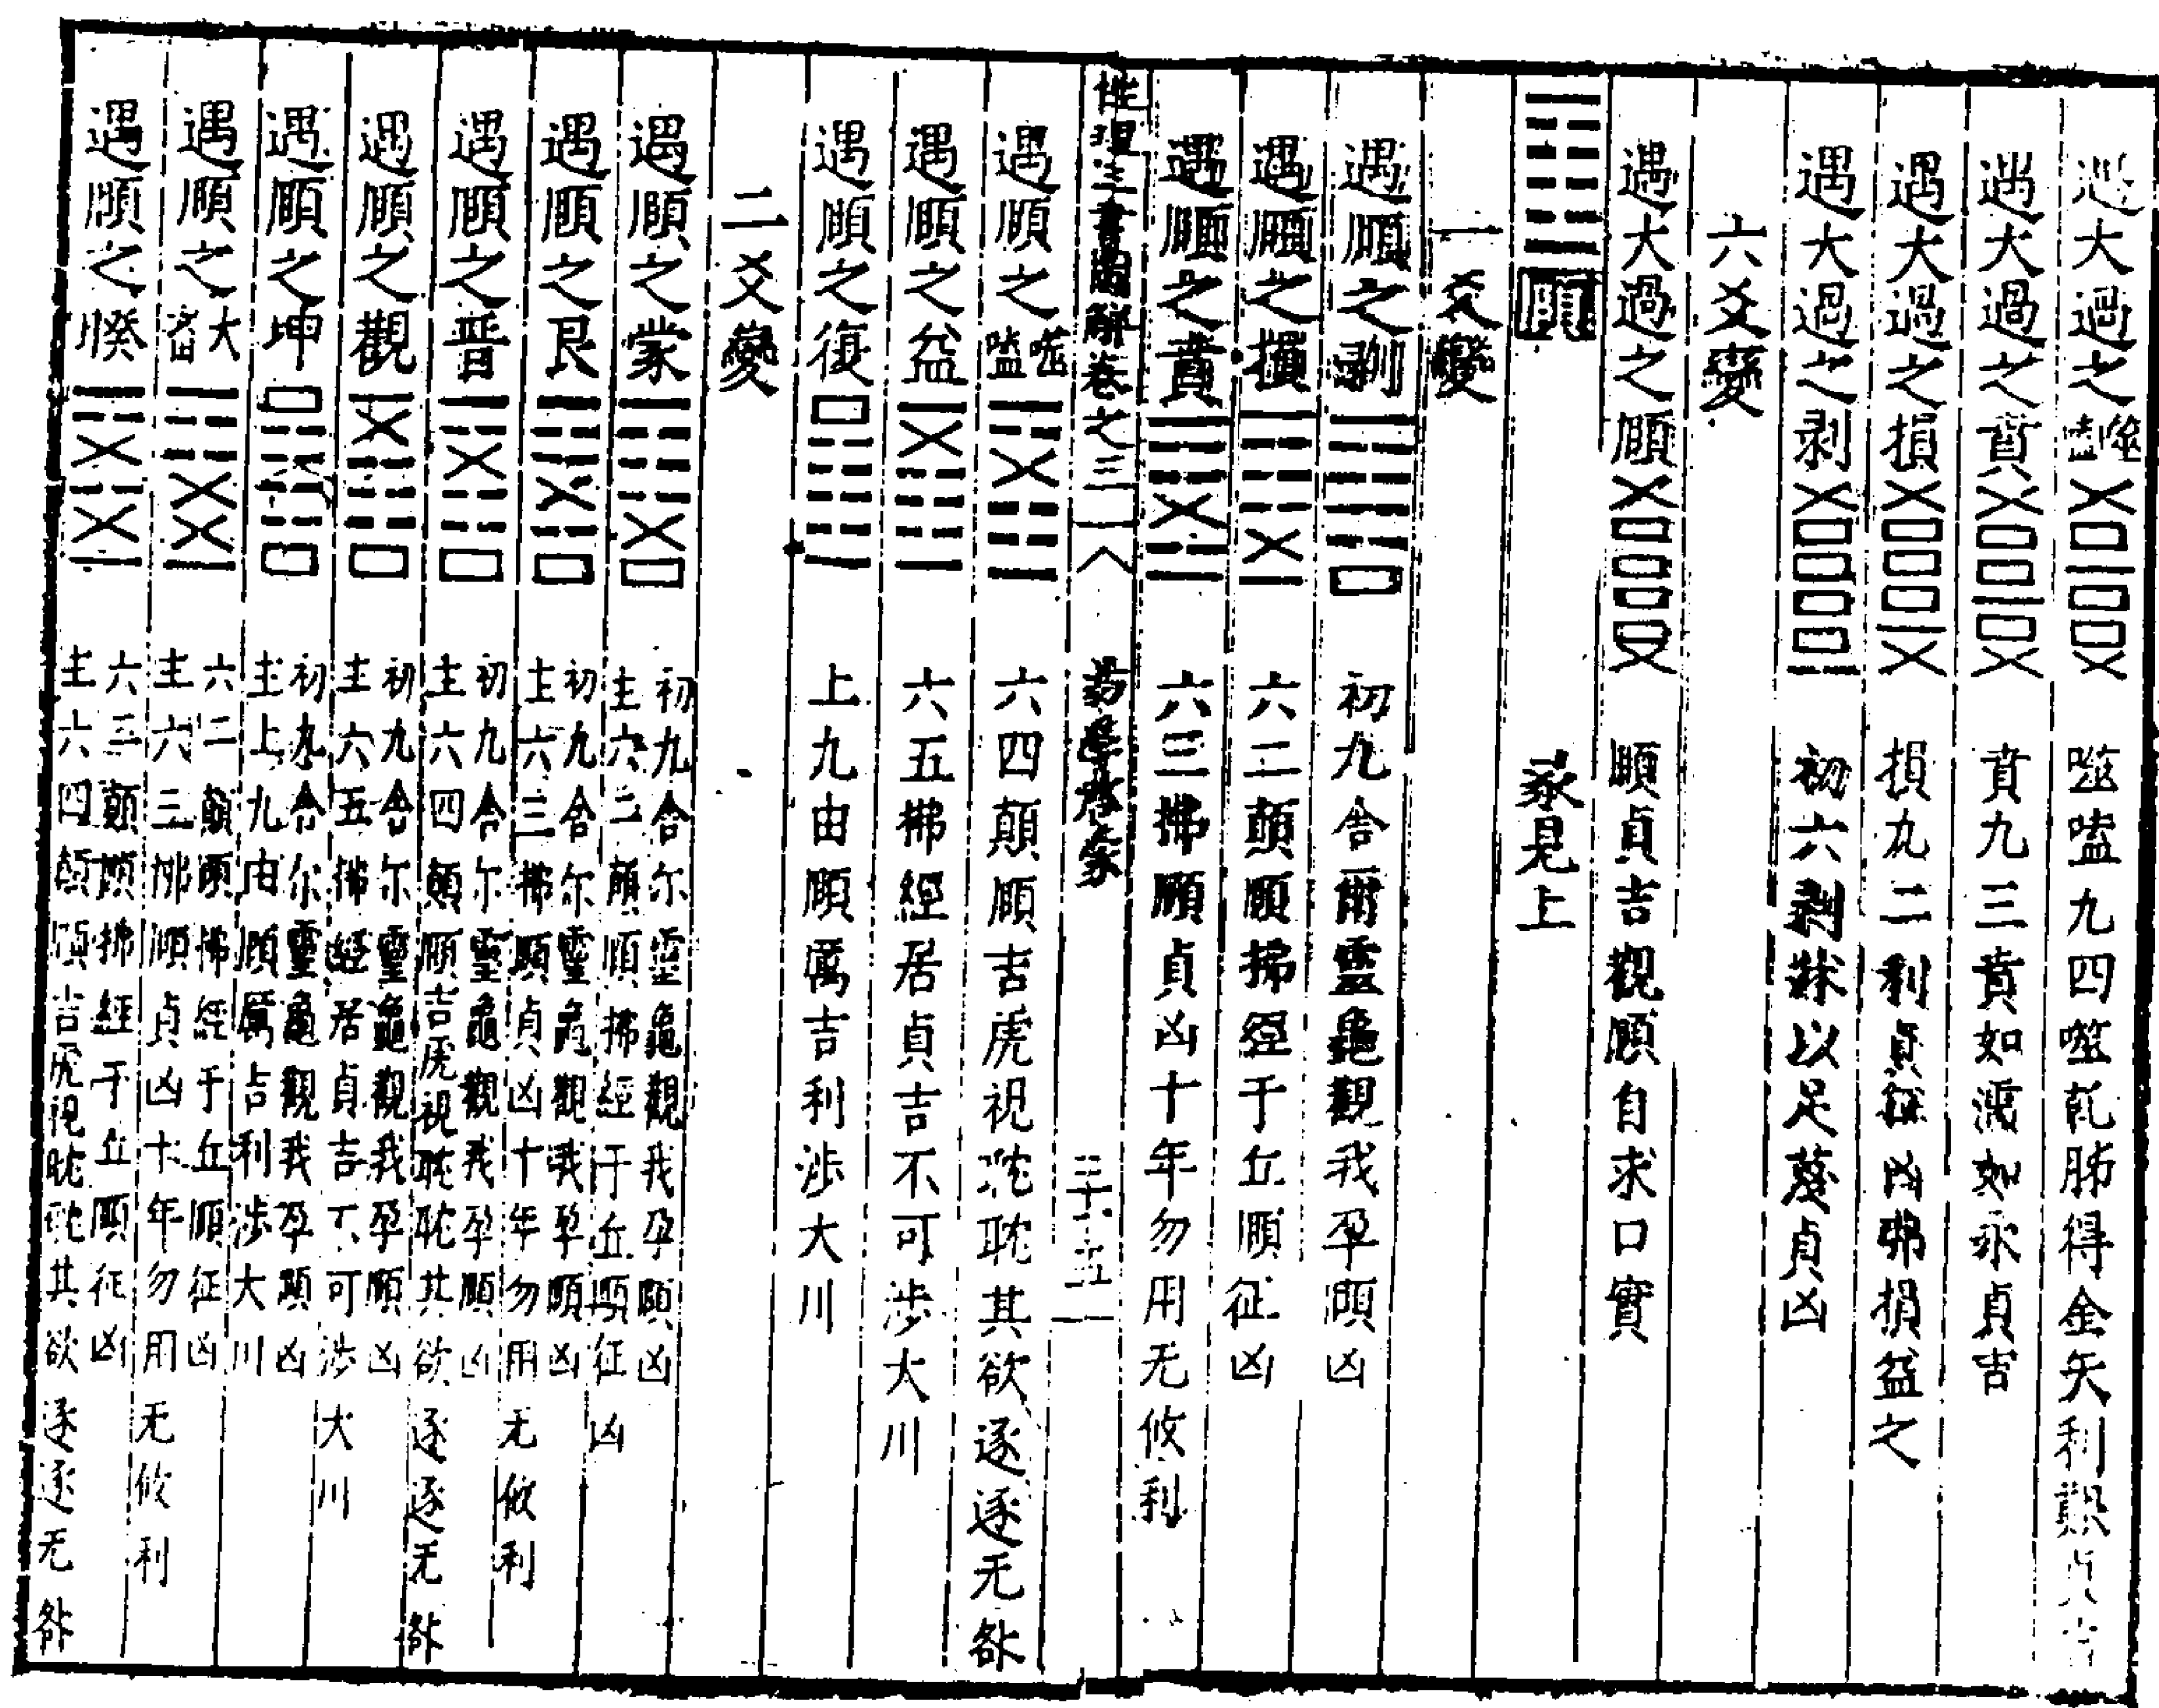 遇大過之噬嗑 噬嗑九四噬乾胏得金矢利艱貞吉
遇大過之賁 賁九三賁如濡如永貞吉
遇大過之損 損九二利貞征凶弗損益之
遇大過之剥 初六剥牀以足蔑貞凶
六爻變
遇大過之頤 頤貞吉觀頤自求口實
頤 彖見上
一爻變
遇頤之剥 初九舍爾靈龜觀我朶頤凶
遇頤之損 六二顛頤拂經于丘頤征凶
遇頤之賁 六三拂頤貞凶十年勿用无攸利
性理三書圖解卷之三 易學啓蒙 三十五
遇頤之噬嗑 六四顛頤吉虎視耽耽其欲逐逐无咎
遇頤之益 六五拂經居貞吉不可涉大川
遇頤之復 上九由頤厲吉利涉大川
二爻變
遇頤之蒙 初九舍尔靈龜觀我朶頤凶
主六二顛頤拂經于丘頤征凶
遇頤之艮 初九舍尔靈龜觀我朶頤凶
主六三拂頤貞凶十年勿用无攸利
遇頤之晋 初九舍尔靈龜觀我朶頤凶
主六四顛頤吉虎視耽耽其欲逐逐无咎
遇頤之觀 初九舍尔靈龜觀我朶頤凶
主六五拂經居貞吉不可涉大川
遇頤之坤 初九舍尔靈龜觀我朶頤凶
主上九由頤厲吉利涉大川
遇頤之大畜 六二顛頤拂經于丘頤征凶
主六三拂頤貞凶十年勿用无攸利
遇頤之睽 六二顛頤拂經于丘頤征凶
主六四顛頤吉虎視耽耽其欲逐逐无咎